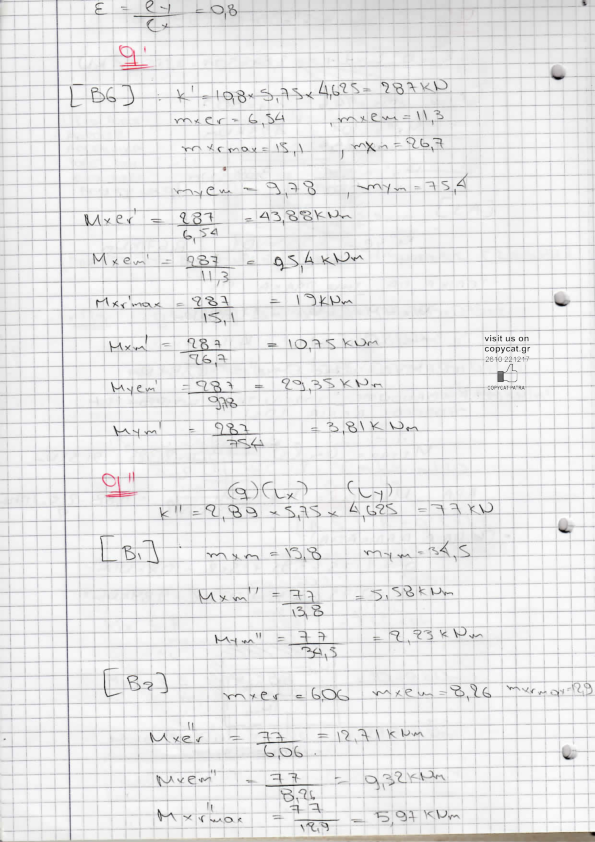 ε = ly/lx = 0,8
q'
[B6] : K' = 10,8 × 5,75 × 4,625 = 287 KN
mxer = 6,54 , mxem = 11,3
mxrmax = 15,1 , mxm = 26,7
myem = 9,78 , mym = 75,4
Mxer' = 287/6,54 = 43,88 KNm
Mxem' = 287/11,3 = 25,4 KNm
Mxr'max = 287/15,1 = 19 KNm
Mxm' = 287/26,7 = 10,75 KNm
visit us on
copycat.gr
2610 221217
COPYCAT PATRA
Myem' = 287/9,78 = 29,35 KNm
Mym' = 287/75,4 = 3,81 KNm
q''
(q) (Lx) (Ly)
K'' = 2,89 × 5,75 × 4,625 = 77 KN
[B1] : mxm = 13,8 mym = 34,5
Mxm'' = 77/13,8 = 5,58 KNm
Mym'' = 77/34,5 = 2,23 KNm
[B2] mxer = 6,06 mxem = 8,26 mxrmax = 12,9
Mxer'' = 77/6,06 = 12,71 KNm
Mxem'' = 77/8,26 = 9,32 KNm
Mxrmax'' = 77/12,9 = 5,97 KNm